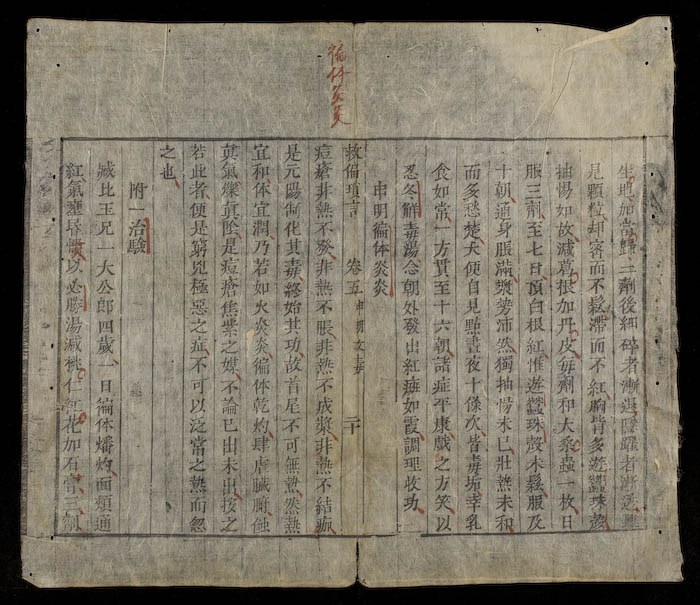 徧体炎炎
生地加當歸二劑後細碎者漸退隱躍者漸透
是顆粒却審而不鬆滯而不紅胸背多遊蠶珠殼
抽惕如故减葛根加丹皮每劑和大桑蟲一枚日
服三劑至七日頂白根紅惟遊蠶珠殼未鬆服及
十朝通身脹滿漿勢沛然獨抽惕未已壯熱未和
而多愁楚大便自見點晝夜十餘次皆毒垢幸乳
食如常一方貫至十六朝諸症平康戲之方笑以
忍冬解毒湯念朝外發出紅痲如霞調理收功
申明徧体炎炎
救偏瑣言 卷五 申明文毒 二十
痘瘡非熱不發非熱不脹非熱不成漿非熱不結痂
是元陽制化其毒終始其功故首尾不可無熱然熱
宜和体宜潤乃若如火炎炎徧体乾灼肆虐臟腑蝕
眞氣爍眞陰是痘瘡焦紫之媒不論已出未出按之
若此者便是窮兇極惡之症不可以泛常之熱而忽
之也
附一治驗
臧比玉兄一大公郎四歲一日徧体燔灼面頬通
紅氣壅昏憒以必勝湯减桃仁紅花加石膏三劑